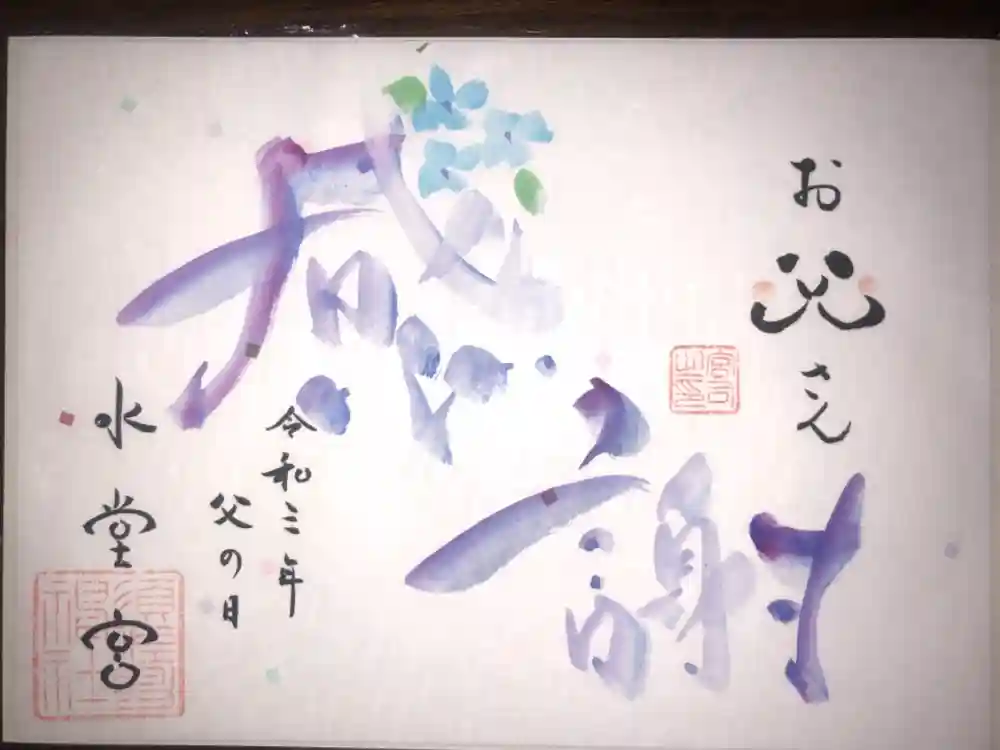 お父さん
感謝
宮司之印
令和三年
父の日
水堂宮